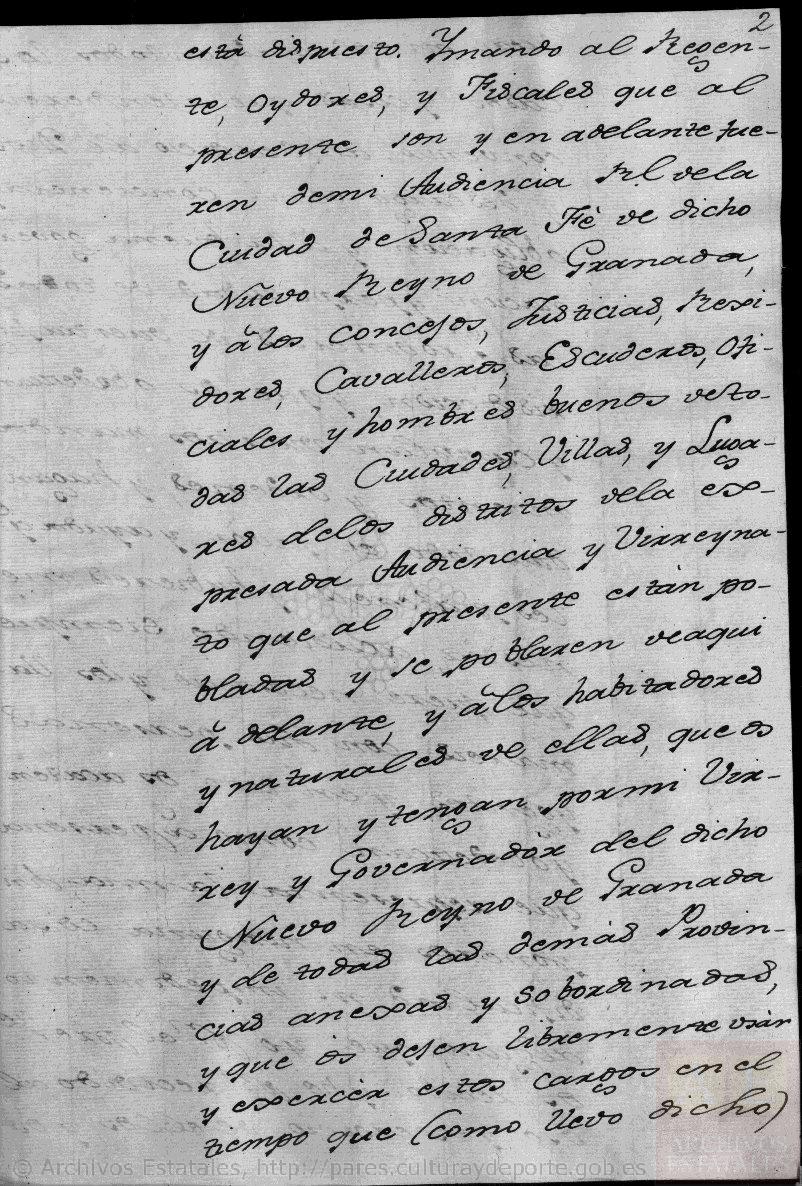 2
está dispuesto. Ymando al Regen-
te, Oydores, y Fiscales que al
presente son y en adelante fue-
ren demi Audiencia Rl. dela
Ciudad de Santa Fè de dicho
Nuevo Reyno de Granada,
y à los Concejos, Justicias, Rexi-
dores, Cavalleros, Escuderos, Ofi-
ciales y hombres buenos de to-
das las Ciudades, Villas, y Luga-
res delos distritos dela ex-
presada Audiencia y Virreyna-
to que al presente están po-
bladas y se poblaren de aqui
à delante, y à los habitadores
y naturales de ellas, que os
hayan y tengan por mi Vir-
rey y Governadòr del dicho
Nuevo Reyno de Granada
y de todas las demàs Provin-
cias anexas y sobordinadas,
y que òs dejen libremente usàr
y exercèr estos cargos en el
tiempo que (como llevo dicho)
© Archivos Estatales, http://pares.culturaydeporte.gob.es
ARCHIVOS
ESTATALES